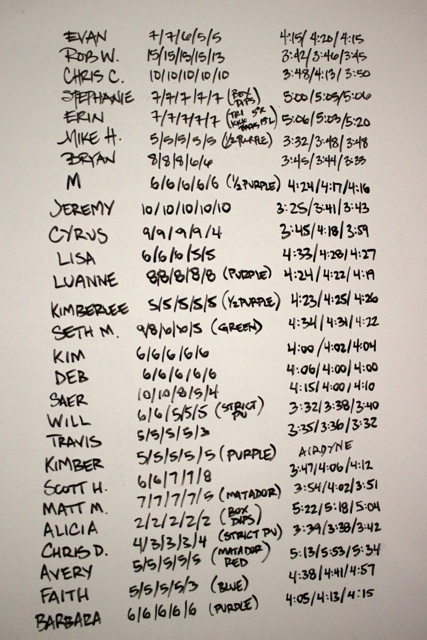 EVAN 7/7/6/5/5 4:15/4:20/4:15
ROB W. 15/15/15/15/13 3:42/3:46/3:45
CHRIS C. 10/10/10/10/10 3:48/4:13/3:50
STEPHANIE 7/7/7/7/7 (BOX DIPS) 5:00/5:05/5:06
ERIN 7/7/7/7/7 (TRI KICK 5:06/5:05/5:20
MIKE H. 5/5/5/5/5 (1/2 PURPLE) 3:32/3:48/3:48
BRYAN 8/8/8/6/6 3:45/3:44/3:35
M 6/6/6/6/6 (1/2 PURPLE) 4:24/4:17/4:16
JEREMY 10/10/10/10/10 3:25/3:41/3:43
CYRUS 9/9/9/9/4 3:45/4:18/3:59
LISA 6/6/6/5/5 4:33/4:28/4:27
LUANNE 8/8/8/8/8 (PURPLE) 4:24/4:22/4:19
KIMBERLEE 5/5/5/5/5 (1/2 PURPLE) 4:23/4:25/4:26
SETH M. 9/8/6/6/5 (GREEN) 4:34/4:31/4:22
KIM 6/6/6/6/6 4:00/4:02/4:04
DEB 6/6/6/6/6 4:06/4:00/4:00
SAER 10/10/8/5/4 4:15/4:00/4:10
WILL 6/6/5/5/5 (STRICT PU) 3:32/3:38/3:40
TRAVIS 5/5/5/5/3 3:35/3:36/3:32
KIMBER 5/5/5/5/5 (PURPLE) AIRDYNE
SCOTT H. 6/6/7/7/8 3:47/4:06/4:12
MATT M. 7/7/7/7/5 (MATADOR) 3:54/4:02/3:51
ALICIA 2/2/2/2/2 (BOX DIPS) 5:22/5:18/5:04
CHRIS D. 4/3/3/3/4 (STRICT PU) 3:39/3:38/3:42
AVERY 5/5/5/5/5 (MATADOR RED) 5:13/5:53/5:34
FAITH 5/5/5/5/3 (BLUE) 4:38/4:41/4:57
BARBARA 6/6/6/6/6 (PURPLE) 4:05/4:13/4:15